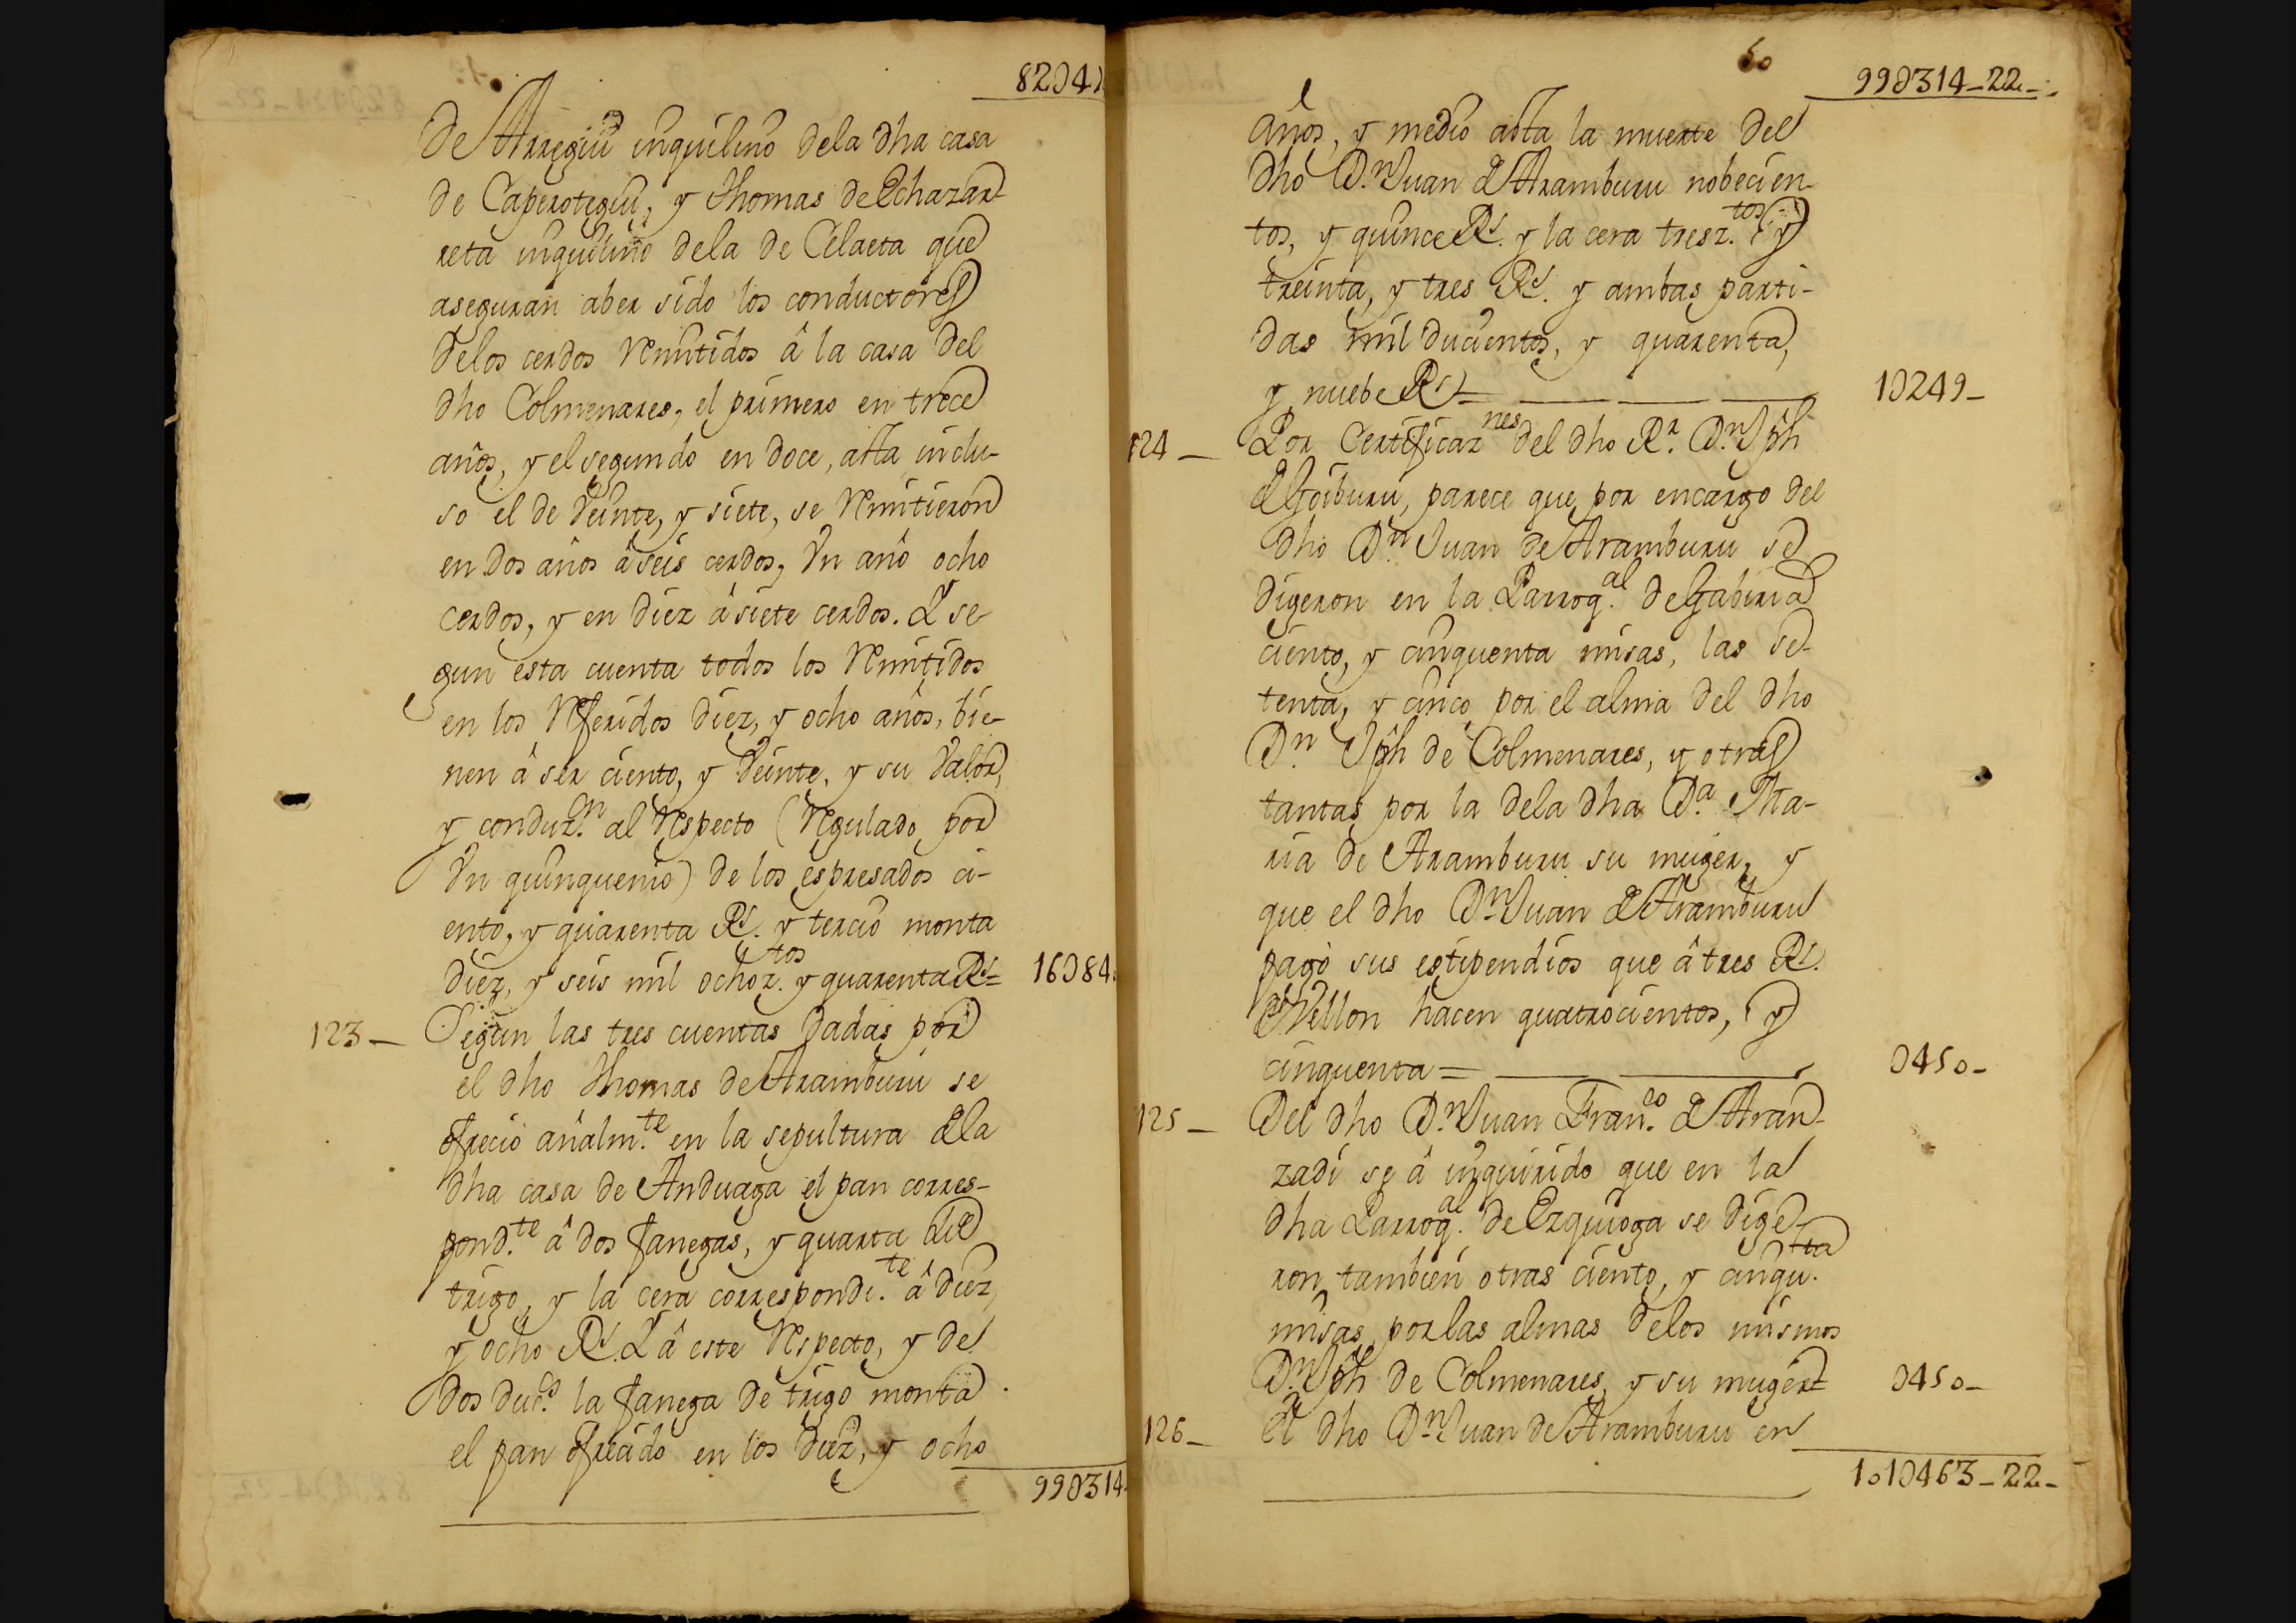 82041
de Arregui inquilino dela dha casa
de Caperotegui, y Thomas de Echazar-
reta inquilino dela de Celaeta que
aseguran aber sido los conductores
delos cerdos Remitidos â la casa del
dho Colmenares, el primero en trece
años, y el segundo en doce, asta inclu-
so el de Veinte, y siete, se Remitieron
en dos años â seis cerdos, Vn año ocho
cerdos, y en diez â siete cerdos. Y se-
gun esta cuenta todos los Remitidos
en los Referidos diez, y ocho años, bie-
nen â ser ciento, y Veinte, y su Valor,
y conduz.on al Respecto (Regulado por
Vn quinquenio) de los espresados ci-
ento, y quarenta Rs. y tercio monta
diez, y seis mil ochoz.tos y quarenta Rs= 16084
123_ Segun las tres cuentas dadas por
el dho Thomas de Aramburu se
ofreció añalm.te en la sepultura de la
dha casa de Anduaga el pan corres-
pond.te â dos fanegas, y quarta de
trigo, y la cera correspondi.te â diez,
y ocho Rs. Y â este Respecto, y de
dos duc.s la fanega de trigo monta
el pan ofrecido en los diez, y ocho
990314
60
990314_22_
años, y medio asta la muerte del
dho D.n Juan de Aramburu nobecien-
tos, y quince Rs. y la cera tresz.tos y
treinta, y tres Rs. y ambas parti-
das mil ducientos, y quarenta,
y nuebe Rs= 10249_
124_ Por Certificaz.nes del dho R.r D.n Jph
de Goiburu, parece que por encargo del
dho D.n Juan de Aramburu se
digeron en la Parroq.al de Gabiria
ciento, y cinquenta misas, las se-
tenta, y cinco por el alma del dho
D.n Jph de Colmenares, y otras
tantas por la dela dha D.a Ma-
ria de Aramburu su muger, y
que el dho D.n Juan de Aramburu
pagó sus estipendios que â tres Rs.
de Vellon hacen quatrocientos, y
cinquenta= 0450_
125_ Del dho D.n Juan Fran.co de Aran-
zadi se â inquirido que en la
dha Parroq.al de Ezquioga se dige-
ron tambien otras ciento, y cinqu.ta
misas por las almas delos mismos
D.n Jph de Colmenares, y su muger= 0450_
126_ El dho D.n Juan de Aramburu en
1010463_22_